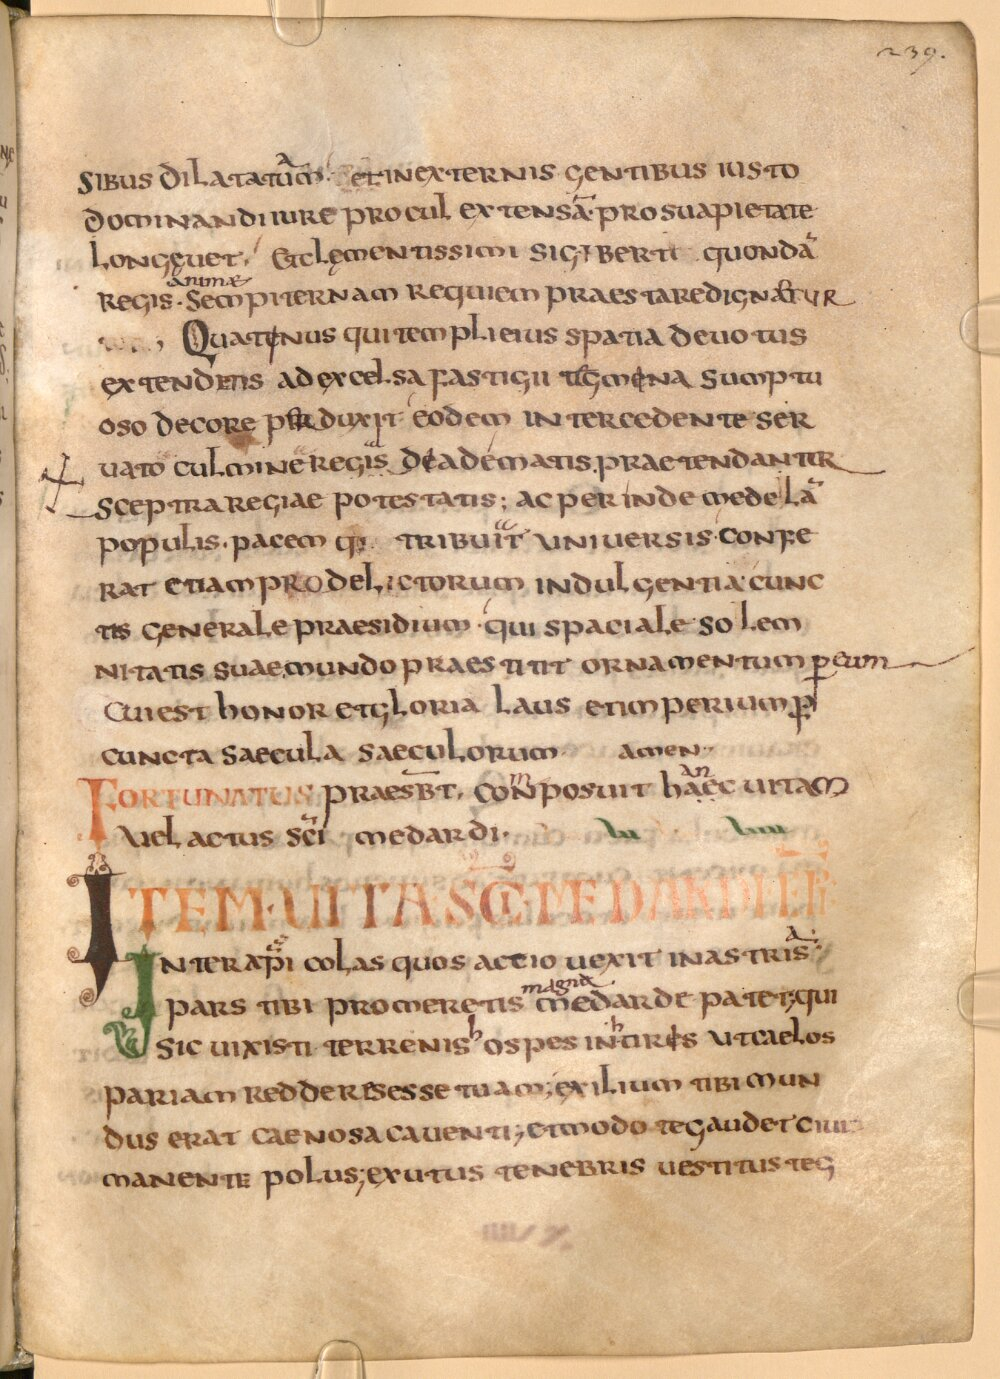 239.
SIBUS DILATATUM ET IN EXTERNIS GENTIBUS IUSTO
DOMINANDI IURE PROCUL EXTENSA. PRO SUA PIETATE
LONGEUET, ET CLEMENTISSIMI SIGIBERTI QUONDA
animæ
REGIS. SEMPITERNAM REQUIEM PRAESTARE DIGNETUR
QUATENUS QUI TEMPLI EIUS SPATIA DEUOTUS
EXTENDENS AD EXCELSA FASTIGII TEGMENA SUMPTU
OSO DECORE PERDUXIT EODEM INTERCEDENTE SER
UATO CULMINE REGIS DEADEMATIS. PRAETENDANTUR
SCEPTRA REGIAE POTESTATIS; AC PERINDE MEDELA
POPULIS. PACEM TRIBUIT UNIUERSIS CONFE
RAT ETIAM PRO DELICTORUM INDULGENTIA CUNC
TIS GENERALE PRAESIDIUM QUI SPACIALE SOLEM
NITATIS SUAE MUNDO PRAESTITIT ORNAMENTUM p eum
CUI EST HONOR ET GLORIA LAUS ET IMPERIUM P
CUNCTA SAECULA SAECULORUM AMEN
FORTUNATUS PRAESBT. COMPOSUIT HANC UITAM
UEL ACTUS SCI MEDARDI.
ITEM UITA SCI MEDARDI EPI
INTER APICOLAS QUOS ACTIO UEXIT IN ASTRIS
magna
PARS TIBI PROMERETIS MEDARDE PATET; QUI
SIC UIXISTI TERRENIS HOSPES IN TIRIS UT CAELOS
PARIAM REDDERES ESSE TUAM; EXILIUM TIBI MUN
DUS ERAT CAENOSA CAUENTI; ET MODO TE GAUDET CIUI
MANENTE POLUS; EXUTUS TENEBRIS UESTITUS TEG